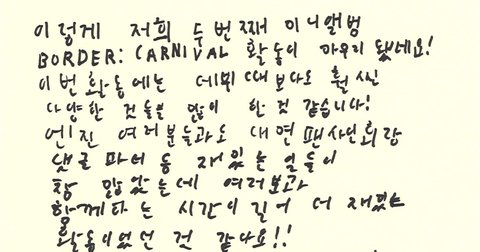 이렇게 저희 두번째 미니앨범
BORDER: CARNIVAL 활동이 마무리 됐네요!
이번 활동에는 데뷔 때보다도 훨씬
다양한 것들을 많이 한 것 같습니다!
엔진 여러분들과도 대면팬사인회랑
댓글 파티 등 재밌는 일들이
참 많았는데 여러분과
함께하는 시간이 길어 더 재밌는
활동이었던 것 같아요!!